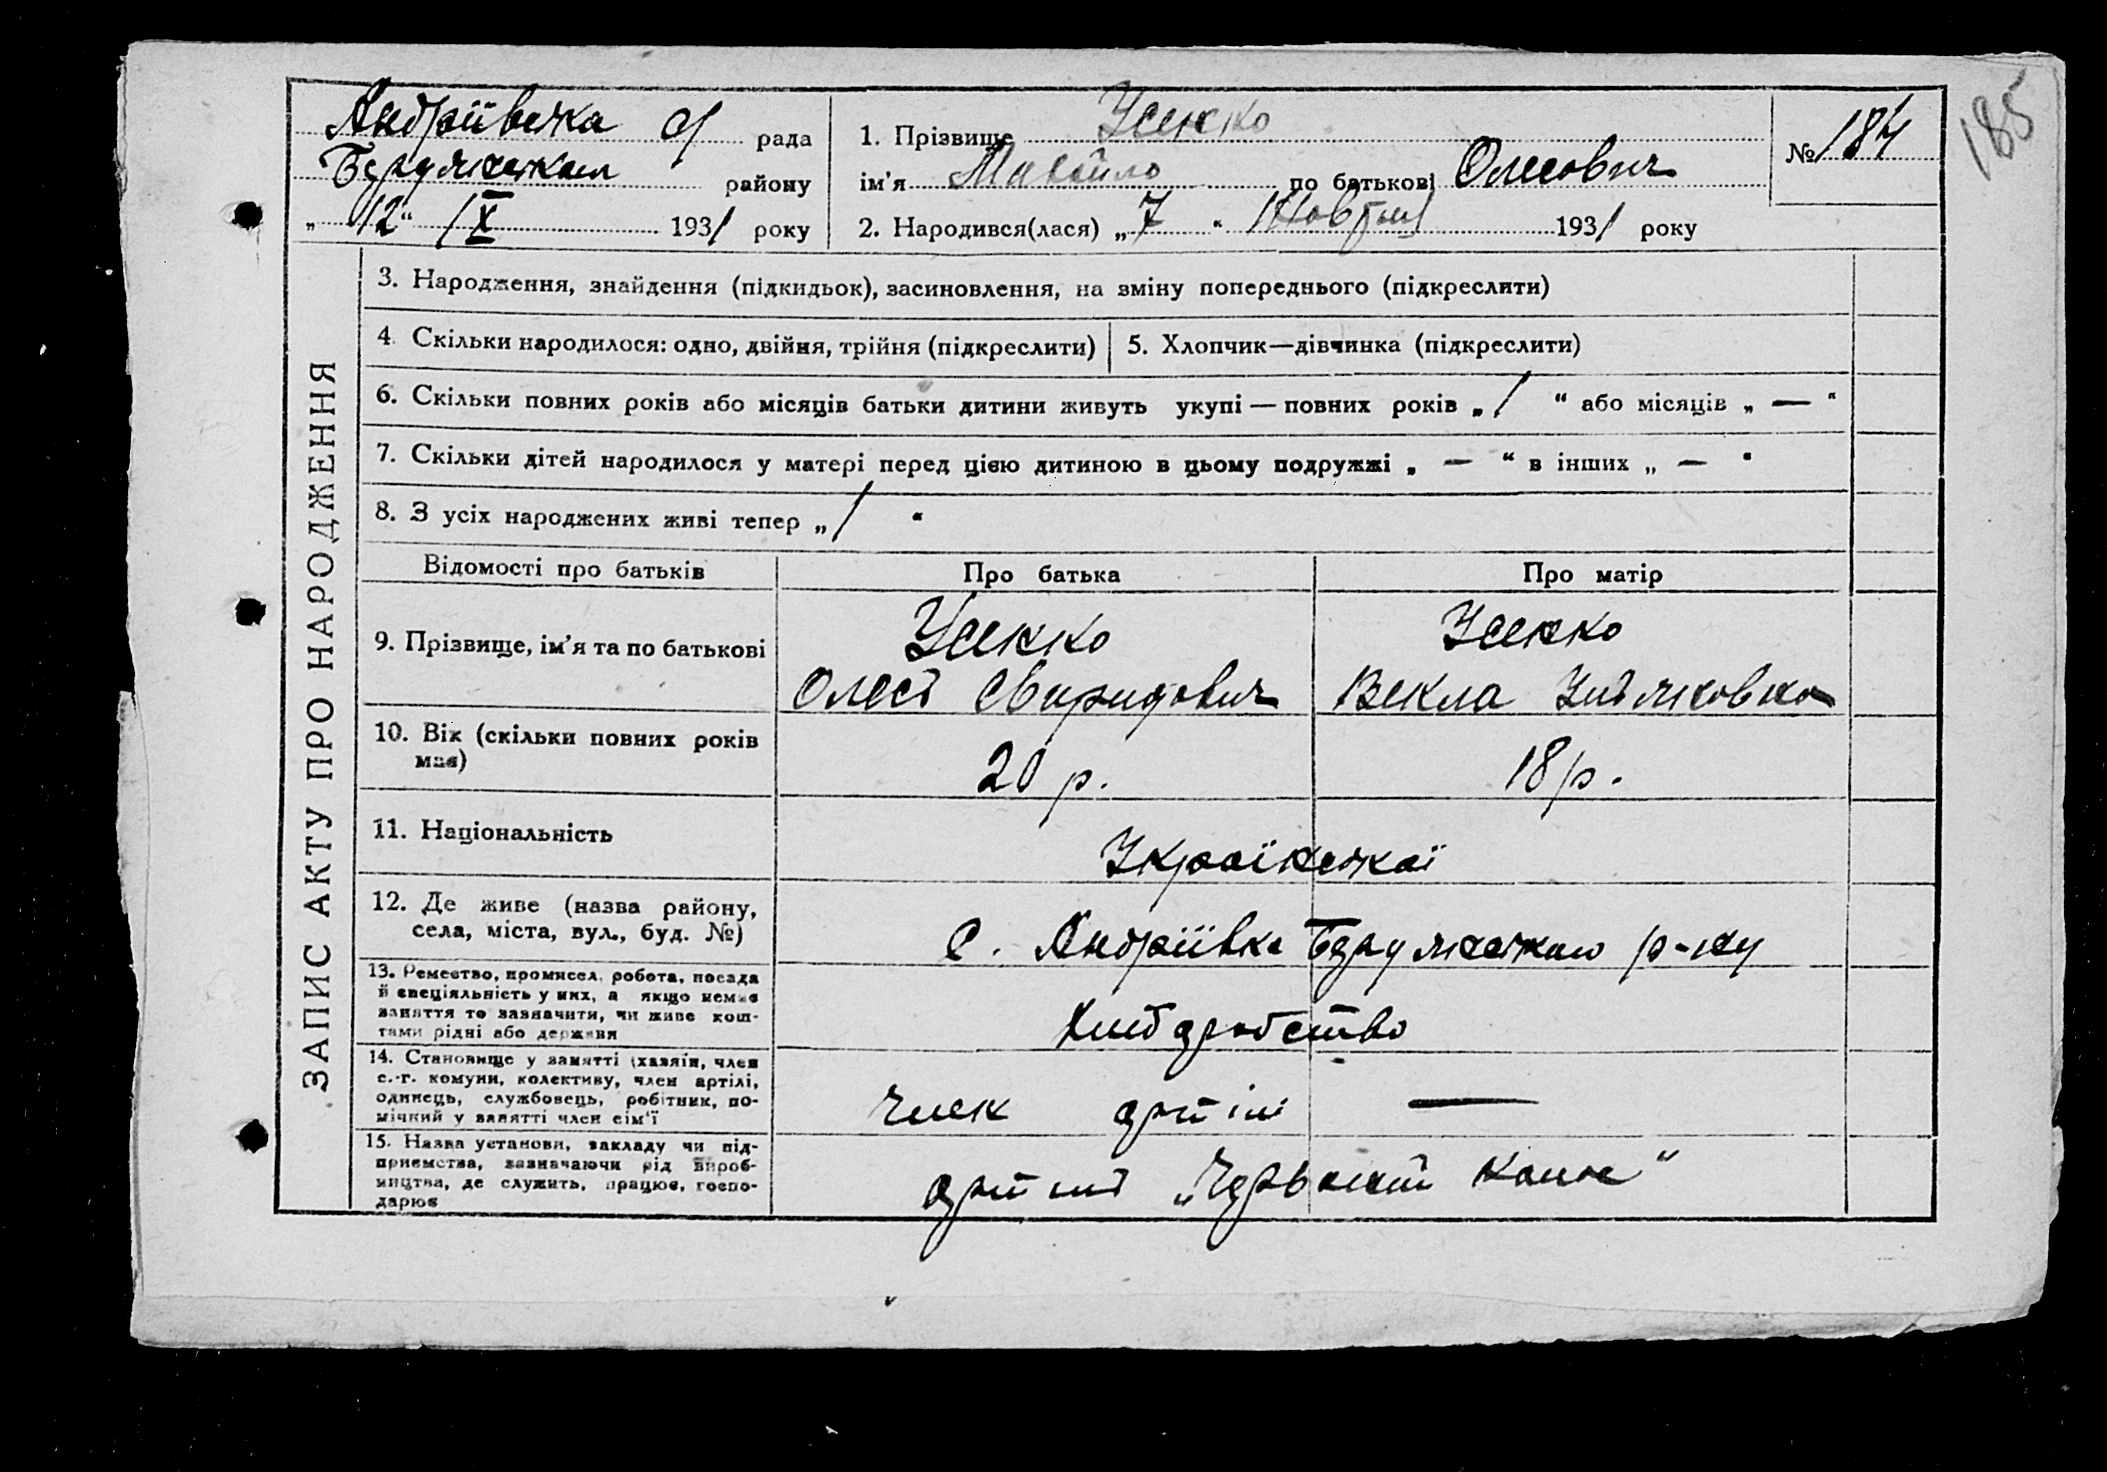 185
Андріївська с/ рада
району
„ 12 “ IX 1931 року
1. Прізвище Усенко
ім’я Михайло по батькові Олесович
2. Народився(лася) „ 7 “ 1931 року
№ 184
ЗАПИС АКТУ ПРО НАРОДЖЕННЯ
3. Народження, знайдення (підкидьок), засиновлення, на зміну попереднього (підкреслити)
4. Скільки народилося: одно, двійня, трійня (підкреслити)
5. Хлопчик—дівчинка (підкреслити)
6. Скільки повних років або місяців батьки дитини живуть укупі — повних років „ 1 “ або місяців „ — “
7. Скільки дітей народилося у матері перед цією дитиною в цьому подружжі „ — “ в інших „ — “
8. З усіх народжених живі тепер „ 1 “
Відомості про батьків
Про батька
Про матір
9. Прізвище, ім’я та по батькові
Усенко
Олесь Свиридович
Усенко
Векла
10. Вік (скільки повних років
має)
20 р.
18 р.
11. Національність
Українській
12. Де живе (назва району,
села, міста, вул., буд. №)
с. Андріївка р-ну
13. Ремество, промисел, робота, посада
й спеціяльність у них, а якщо немає
заняття то зазначити, чи живе кош-
тами рідні або держави
Хліборобство
14. Становище у занятті (хазяїн, член
с.-г. комуни, колективу, член артілі,
одинець, службовець, робітник, по-
мічний у занятті член сім’ї
член артілі —
15. Назва установи, закладу чи під-
приємства, зазначаючи рід вироб-
ництва, де служить, працює, госпо-
дарює
артіль „Червоний